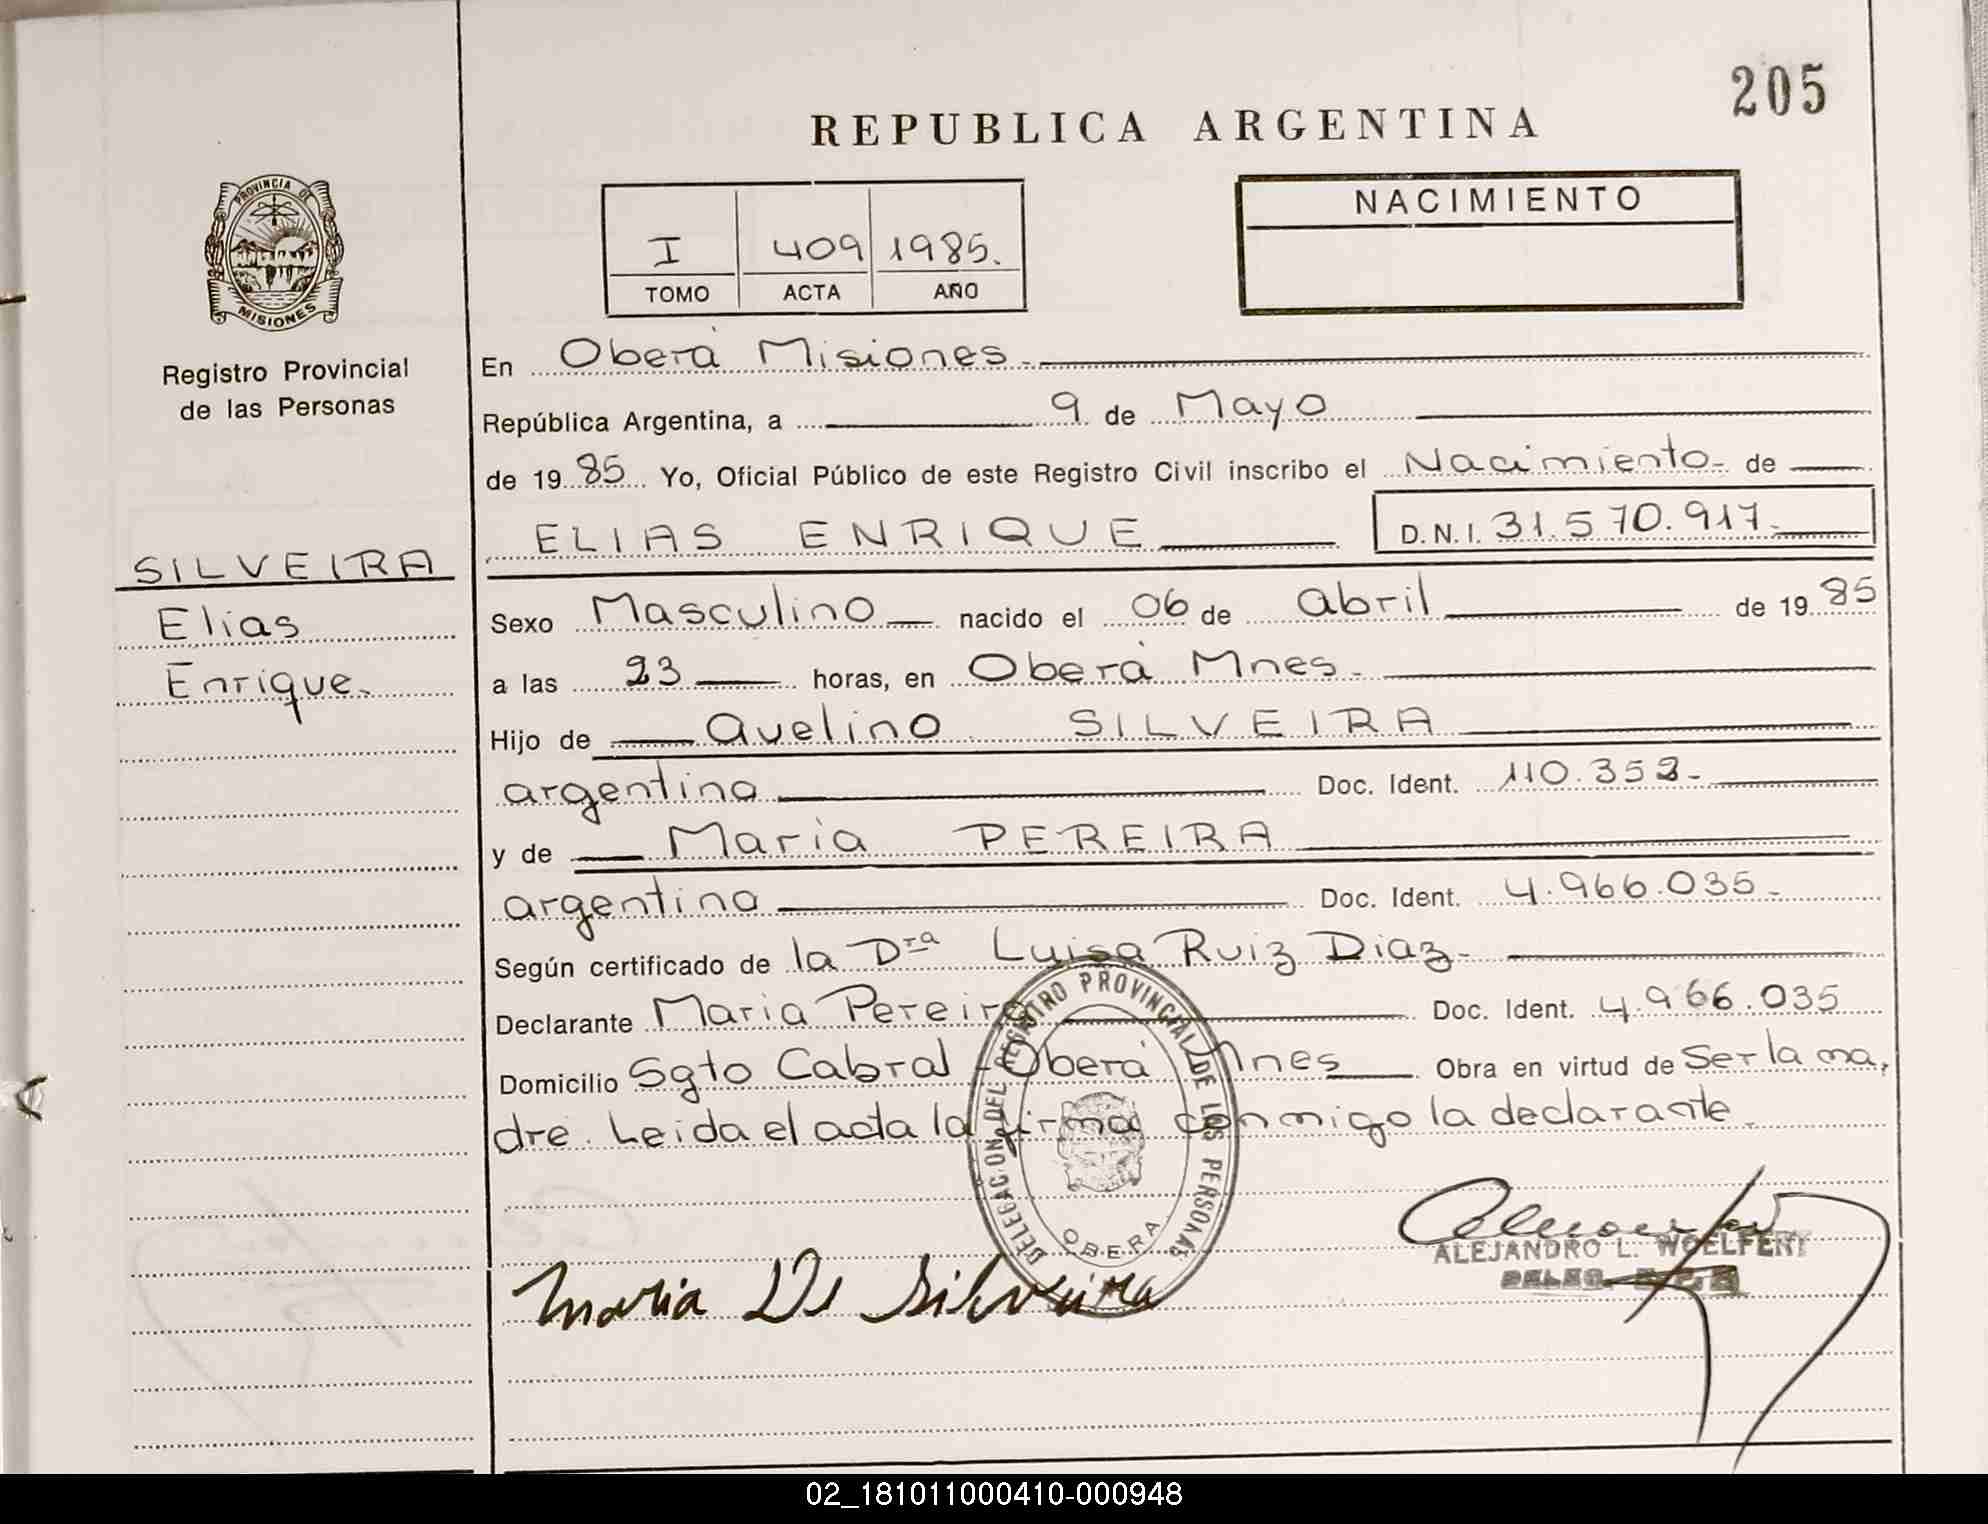 205
REPUBLICA ARGENTINA
PROVINCIA DE
MISIONES
Registro Provincial
de las Personas
I 409 1985.
TOMO ACTA AÑO
NACIMIENTO
En Oberá Misiones.
República Argentina, a 9 de Mayo
de 1985 Yo, Oficial Público de este Registro Civil inscribo el Nacimiento- de
ELIAS ENRIQUE D.N.I. 31.570.917-
SILVEIRA
Elias
Enrique.
Sexo Masculino nacido el 06 de abril de 1985
a las 23 horas, en Oberá Mnes.
Hijo de Avelino SILVEIRA
argentino Doc. Ident. 110.352-
y de Maria PEREIRA
argentina Doc. Ident. 4.966.035-
Según certificado de la Dra Luisa Ruiz Diaz-
Declarante Maria Pereira Doc. Ident. 4.966.035
Domicilio Sgto Cabral - Oberá Mnes Obra en virtud de Ser la ma,
dre. Leida el acta la firma conmigo la declarante.
DELEGACION DEL REGISTRO PROVINCIAL DE LAS PERSONAS
OBERA
ALEJANDRO L. WOELFERT
Maria De Silveira
02_181011000410-000948